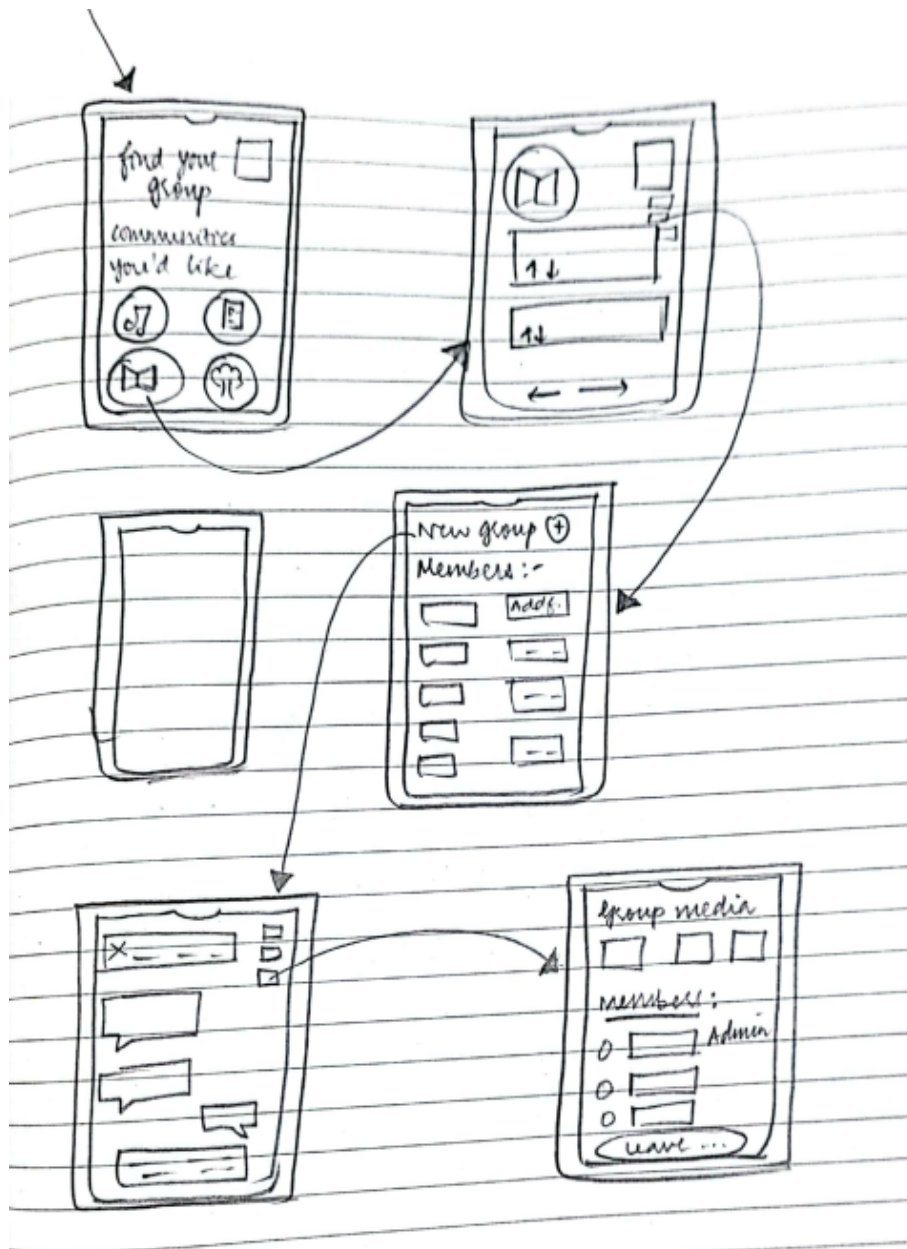 find your
group
communities
you'd like
New group
Members :-
Group media
members :
Admin
Leave ...